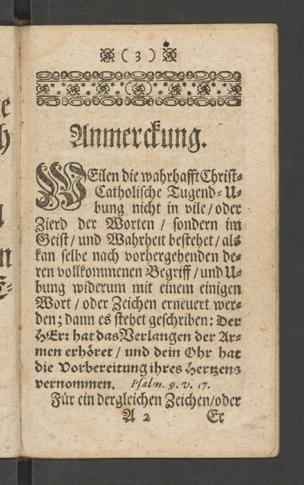 ( 3 )
Anmerckung.
WEilen die wahrhafft Christ-
Catholische Tugend-U-
bung nicht in vile/oder
Zierd der Worten / sondern im
Geist/ und Wahrheit bestehet/ als
kan selbe nach vorhergehenden de-
ren vollkommenen Begriff/ und U-
bung widerum mit einem einigen
Wort / oder Zeichen erneuert wer-
den; dann es stehet geschriben: Der
HErr hat das Verlangen der Ar-
men erhöret / und dein Ohr hat
die Vorbereitung ihres Hertzens
vernommen. Psalm. 9. v. 17.
Für ein dergleichen Zeichen/oder
A 2 Er